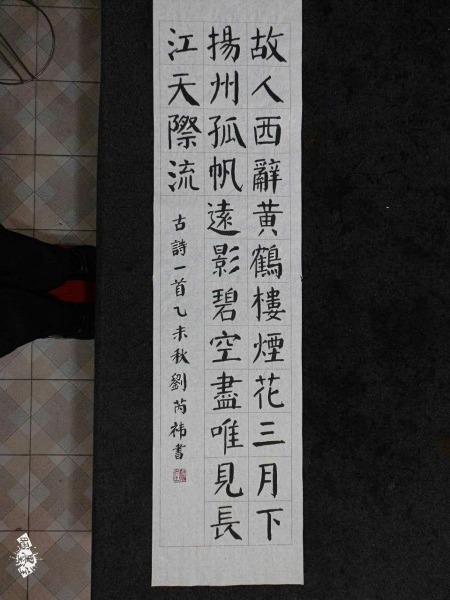 故人西辭黄鶴樓煙花三月下
揚州孤帆遠影碧空盡唯見長
江天際流
古詩一首乙未秋劉芮祎書